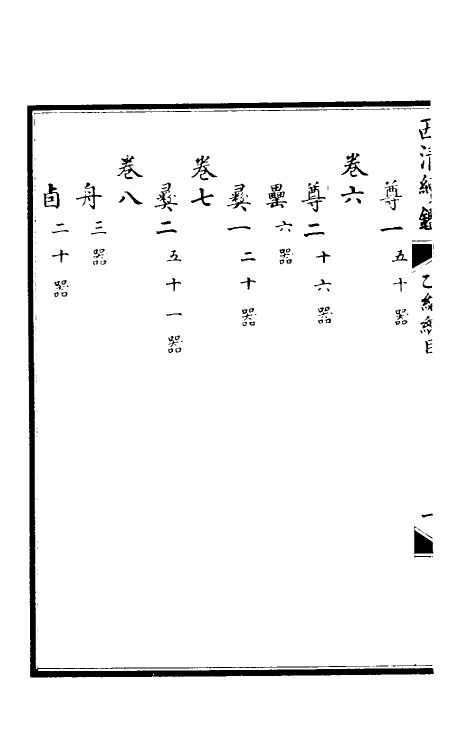 西清續鑑 乙編總目 一
尊一 五十器
卷六
尊二 十六器
罍 六器
彝一 二十器
卷七
彝二 五十一器
卷八
舟 三器
卣 二十器